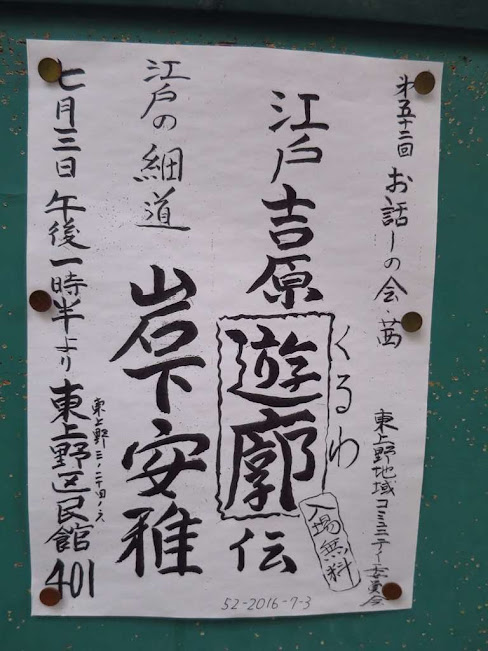 第五十二回 お話しの会・茜
東上野地域コミュニティー委員会
くるわ
江戸吉原遊廓伝
入場無料
江戸の細道 岩下安雅
七月三日 午後一時半より 東上野区民館401
52-2016-7-3